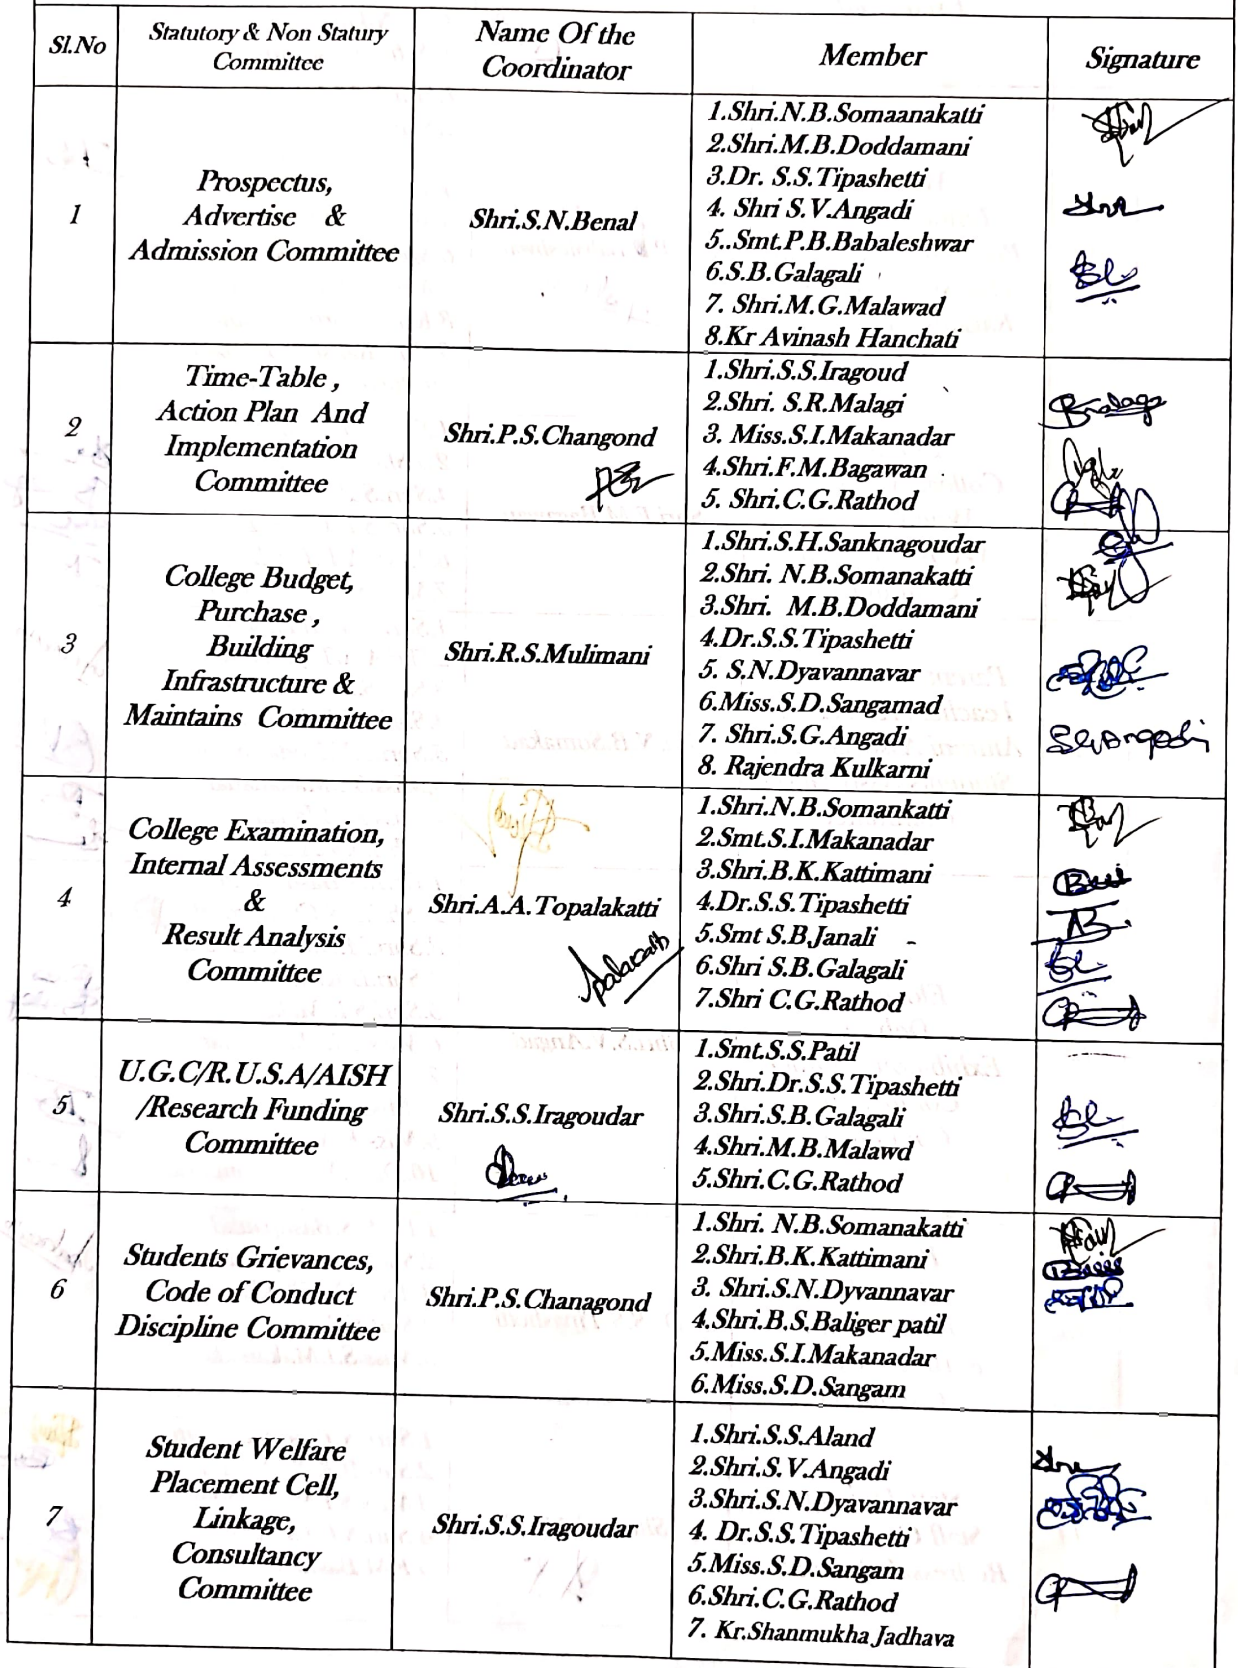 Sl.No
Statutory & Non Statury
Committee
Name Of the
Coordinator
Member
Signature
1
Prospectus,
Advertise &
Admission Committee
Shri.S.N.Benal
1.Shri.N.B.Somaanakatti
2.Shri.M.B.Doddamani
3.Dr. S.S.Tipashetti
4. Shri S.V.Angadi
5..Smt.P.B.Babaleshwar
6.S.B.Galagali
7. Shri.M.G.Malawad
8.Kr Avinash Hanchati
2
Time-Table ,
Action Plan And
Implementation
Committee
Shri.P.S.Changond
1.Shri.S.S.Iragoud
2.Shri. S.R.Malagi
3. Miss.S.I.Makanadar
4.Shri.F.M.Bagawan
5. Shri.C.G.Rathod
3
College Budget,
Purchase ,
Building
Infrastructure &
Maintains Committee
Shri.R.S.Mulimani
1.Shri.S.H.Sanknagoudar
2.Shri. N.B.Somanakatti
3.Shri. M.B.Doddamani
4.Dr.S.S.Tipashetti
5. S.N.Dyavannavar
6.Miss.S.D.Sangamad
7. Shri.S.G.Angadi
8. Rajendra Kulkarni
4
College Examination,
Internal Assessments
&
Result Analysis
Committee
Shri.A.A.Topalakatti
1.Shri.N.B.Somankatti
2.Smt.S.I.Makanadar
3.Shri.B.K.Kattimani
4.Dr.S.S.Tipashetti
5.Smt S.B.Janali
6.Shri S.B.Galagali
7.Shri C.G.Rathod
5
U.G.C/R.U.S.A/AISH
/Research Funding
Committee
Shri.S.S.Iragoudar
1.Smt.S.S.Patil
2.Shri.Dr.S.S.Tipashetti
3.Shri.S.B.Galagali
4.Shri.M.B.Malawd
5.Shri.C.G.Rathod
6
Students Grievances,
Code of Conduct
Discipline Committee
Shri.P.S.Chanagond
1.Shri. N.B.Somanakatti
2.Shri.B.K.Kattimani
3. Shri.S.N.Dyvannavar
4.Shri.B.S.Baliger patil
5.Miss.S.I.Makanadar
6.Miss.S.D.Sangam
7
Student Welfare
Placement Cell,
Linkage,
Consultancy
Committee
Shri.S.S.Iragoudar
1.Shri.S.S.Aland
2.Shri.S.V.Angadi
3.Shri.S.N.Dyavannavar
4. Dr.S.S.Tipashetti
5.Miss.S.D.Sangam
6.Shri.C.G.Rathod
7. Kr.Shanmukha Jadhava